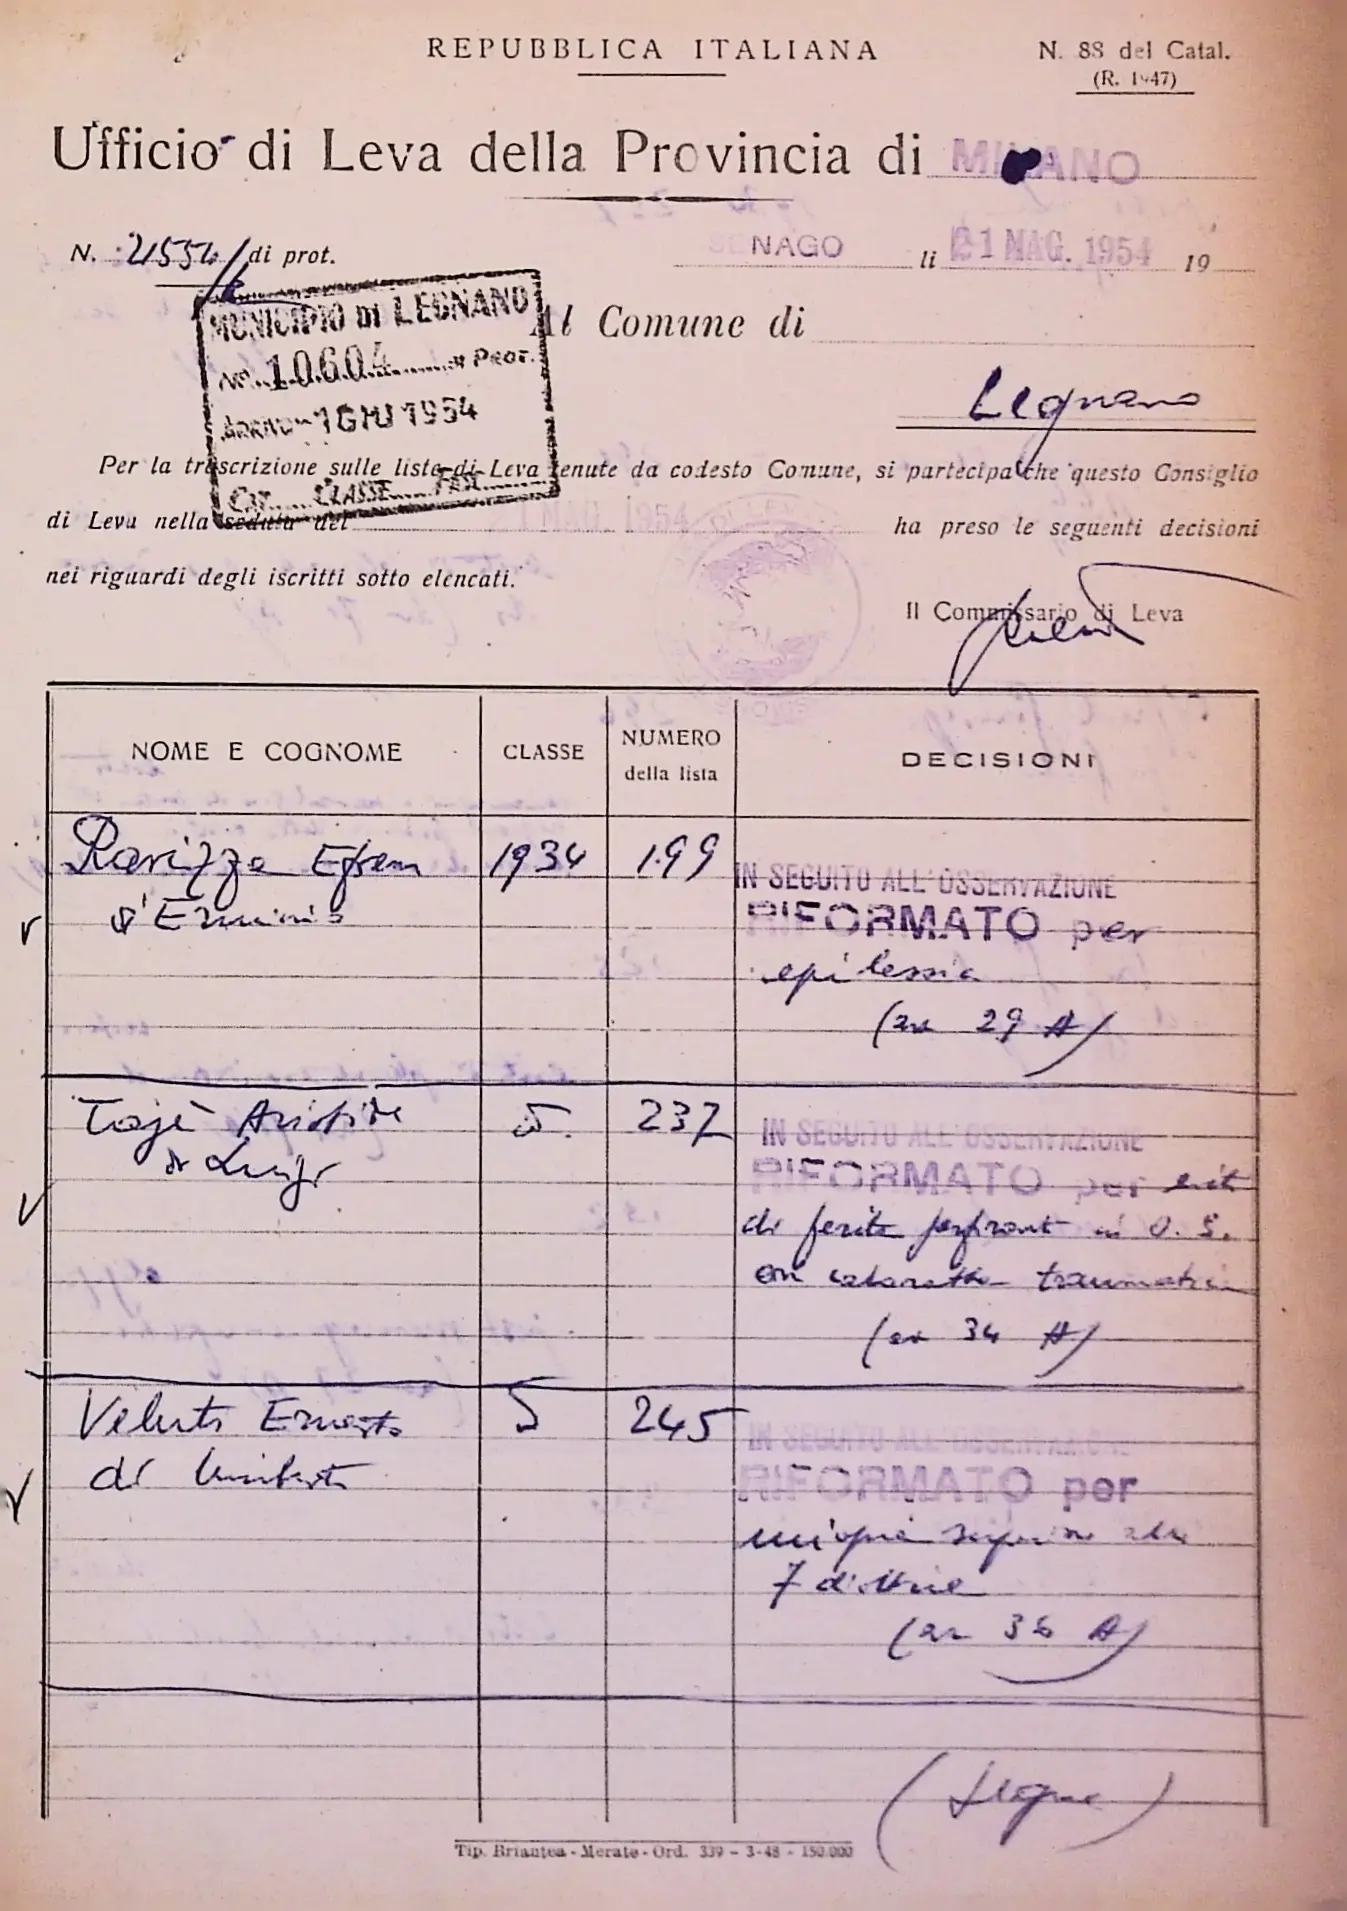 REPUBBLICA ITALIANA
N. 88 del Catal.
(R. 1947)
Ufficio di Leva della Provincia di MILANO
N. 21554 di prot.
SENAGO li 21 MAG. 1954 19
MUNICIPIO DI LEGNANO
No. 10604 di Prot.
ARRIVO 1 GIU 1954
Cat. CLASSE Fasc.
Al Comune di
Legnano
Per la trascrizione sulle liste di Leva tenute da codesto Comune, si partecipa che questo Consiglio
di Leva nella seduta del 21 MAG. 1954 ha preso le seguenti decisioni
nei riguardi degli iscritti sotto elencati.
Il Commissario di Leva
NOME E COGNOME
CLASSE
NUMERO
della lista
DECISIONI
Ravizza Efrem
d'Erminio
1934
199
IN SEGUITO ALL'OSSERVAZIONE
RIFORMATO per
epilessia
(art 29 A)
Tajè Aristide
di Luigi
237
IN SEGUITO ALL'OSSERVAZIONE
RIFORMATO per esiti
di ferita perforante in O. S.
con cataratta traumatica
(art 34 A)
Veluti Ernesto
di Umberto
245
IN SEGUITO ALL'OSSERVAZIONE
RIFORMATO per
miopia superiore alle
7 diottrie
(art 36 A)
(segue)
Tip. Briantea - Merate - Ord. 339 - 3-48 - 150.000